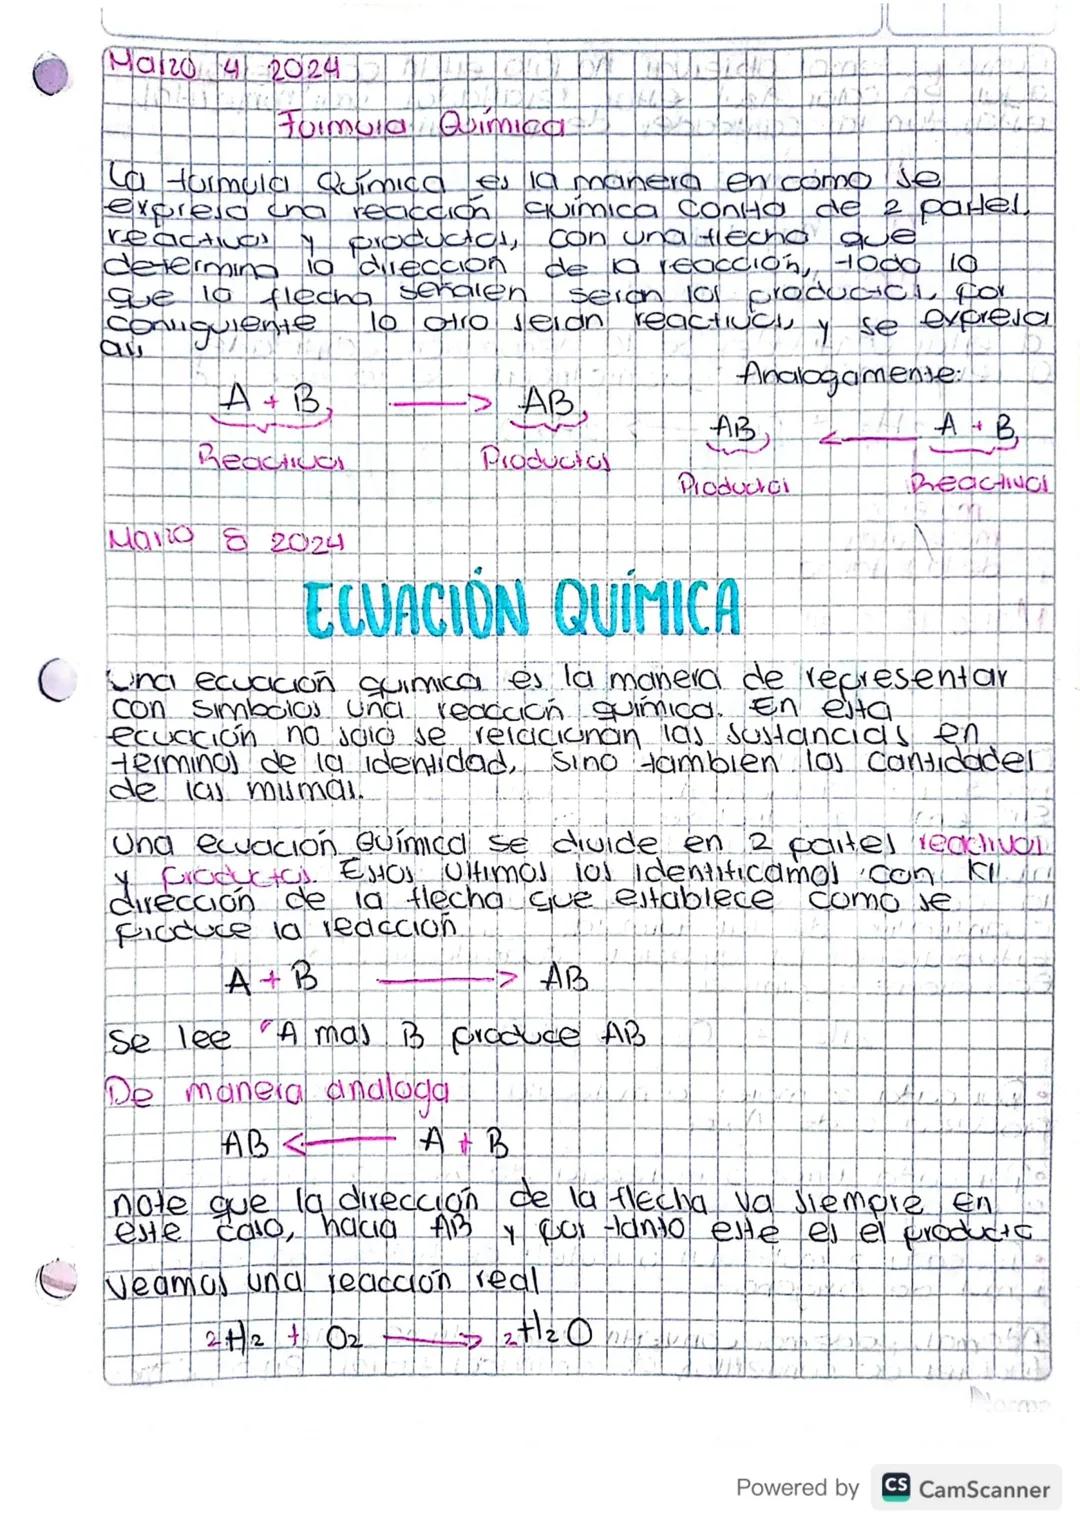 Marzo 4 2024
Formula Química
La formula Química es la manera en como se
expresa una reacción química consta de 2 partes,
reactivos y productos, con una flecha que
determina la dirección de la reacción, todo lo
que la flecha señalen seran los productos, por
consiguiente lo otro seran reactivos, y se expresa
asi,
Analogamente:
A + B → AB
Reactivos Productos
AB ← A + B
Productos Reactivos
Marzo 8 2024
ECUACIÓN QUÍMICA
Una ecuación química es la manera de representar
con simbolos una reacción química. En esta
ecuación no solo se relacionan las sustancias en
terminos de la identidad, sino tambien las cantidades
de las mismas.
Una ecuación Química se divide en 2 partes reactivos
y productos. Estos ultimos los identificamos con
dirección de la flecha que establece como se
produce la reacción
A + B → AB
se lee "A mas B produce AB
De manera analoga
AB ← A + B
note que la dirección de la flecha va siempre en
este caso, hacia AB y por tanto este es el producto
veamos una reacción real
2H2 + O2 → 2H2O
Norma
Powered by CS CamScanner